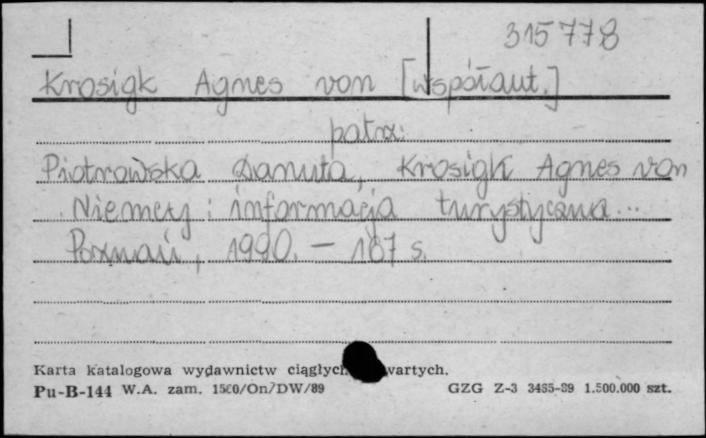 315778
Krosigk Agnes von [współaut.]
patrz:
Piotrowska Danuta, Krosigk Agnes von
Niemcy: informacja turystyczna...
Poznań, 1990. — 167 s.
Karta katalogowa wydawnictw ciągłych wartych.
Pu-B-144 W.A. zam. 1560/On/DW/89 GZG Z-3 3485-89 1.500.000 szt.